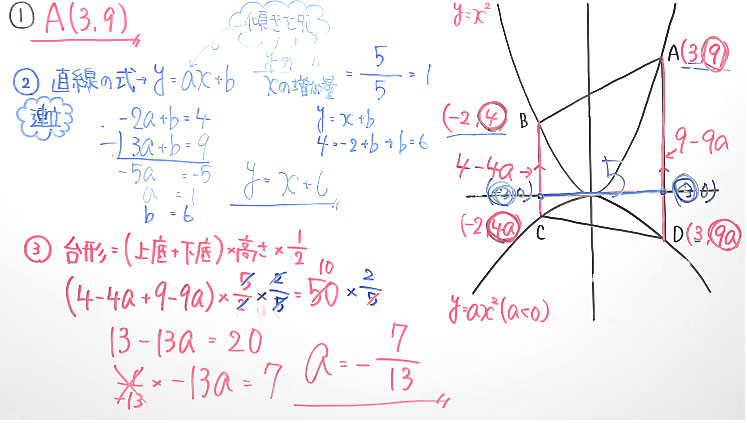 ① A(3,9)
傾きを先
② 直線の式→y=ax+b yの 〃 / xの増加量 = 5/5 = 1
連立
-2a+b=4
-) 3a+b=9
-5a = -5
a = 1
b = 6
y=x+b
4=-2+b→b=6
y=x+6
③ 台形=(上底+下底)×高さ×1/2
(4-4a+9-9a)×5/2×2/5=50×2/5
10
13-13a=20
× -13a=7
a=-7/13
y=x²
A(3,9)
B
(-2,4)
4-4a→
9-9a
5
(-2,0)
(3,0)
(-2,4a)
C
D(3,9a)
y=ax²(a<0)